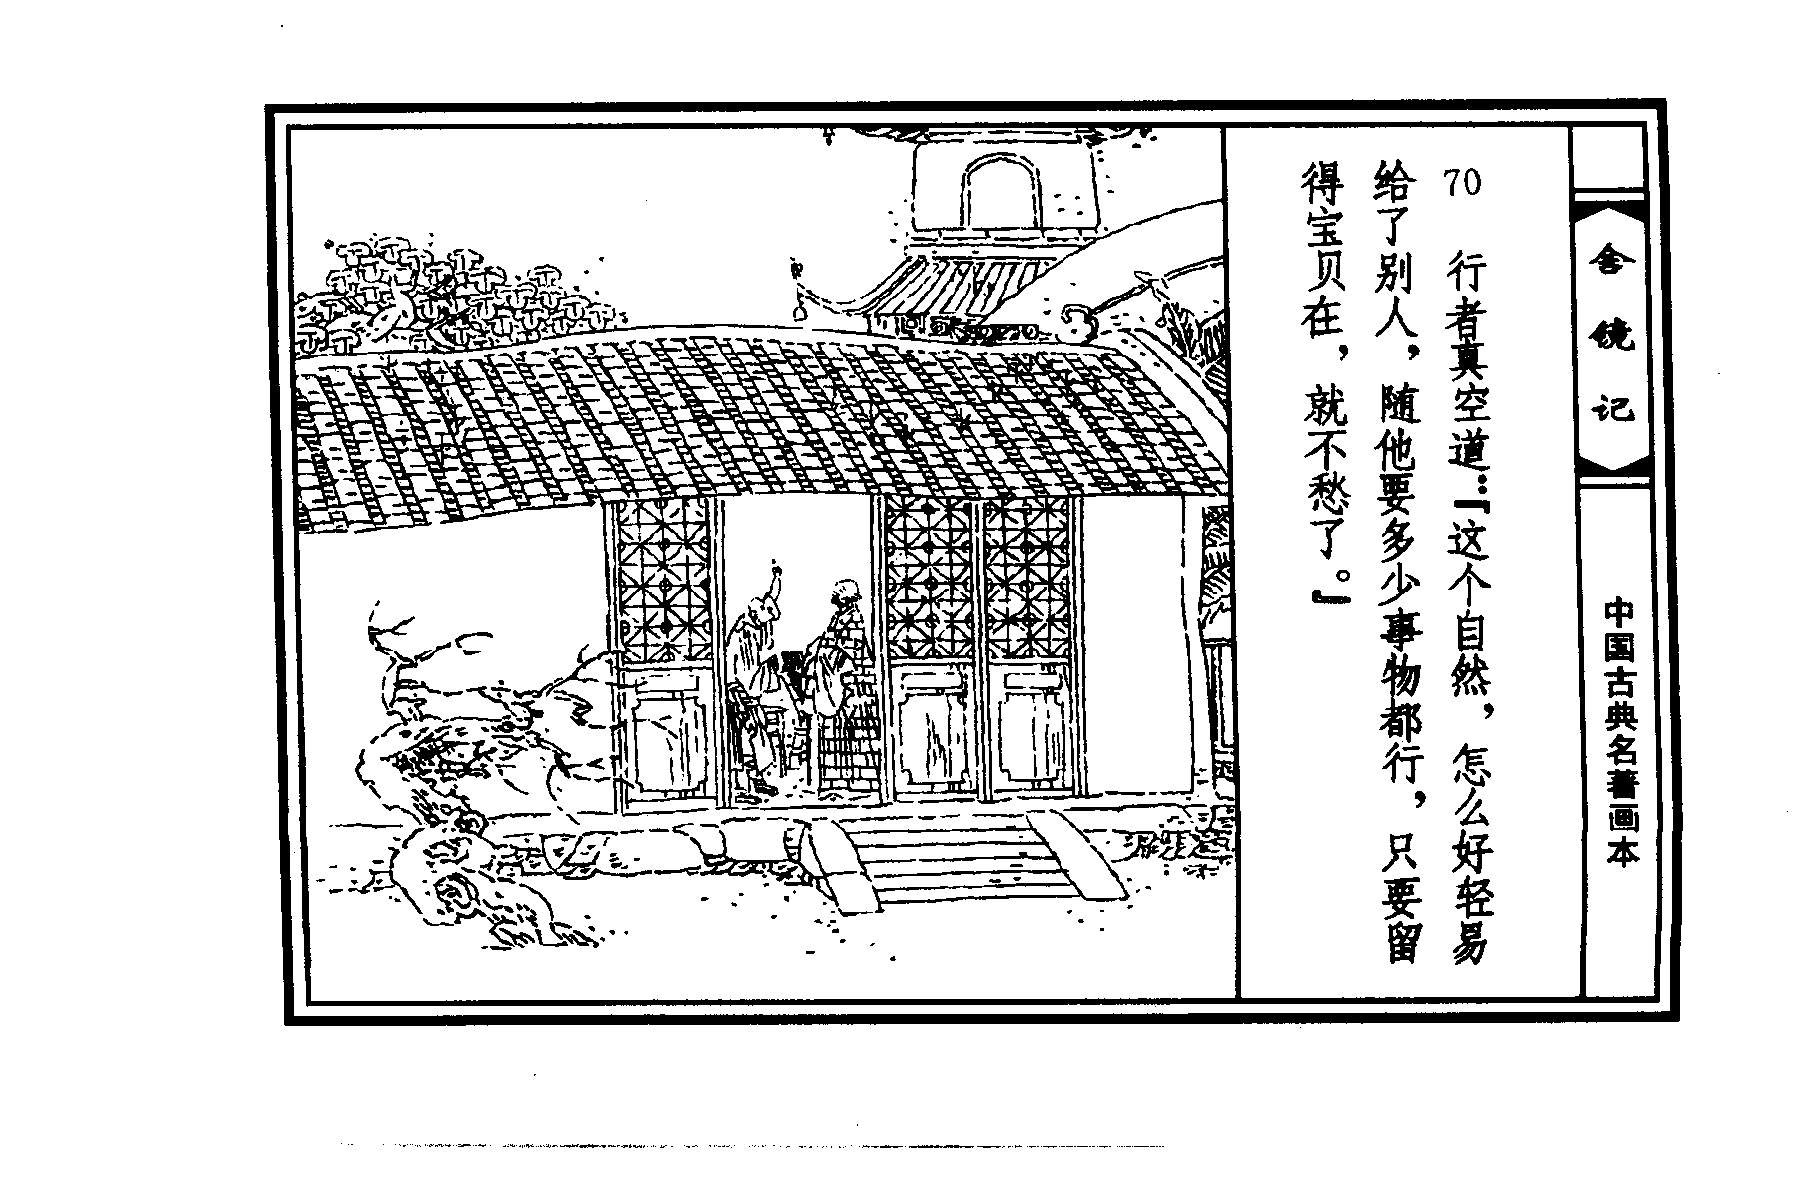 舍镜记
中国古典名著画本
70 行者真空道：『这个自然，怎么好轻易
给了别人，随他要多少事物都行，只要留
得宝贝在，就不愁了。』